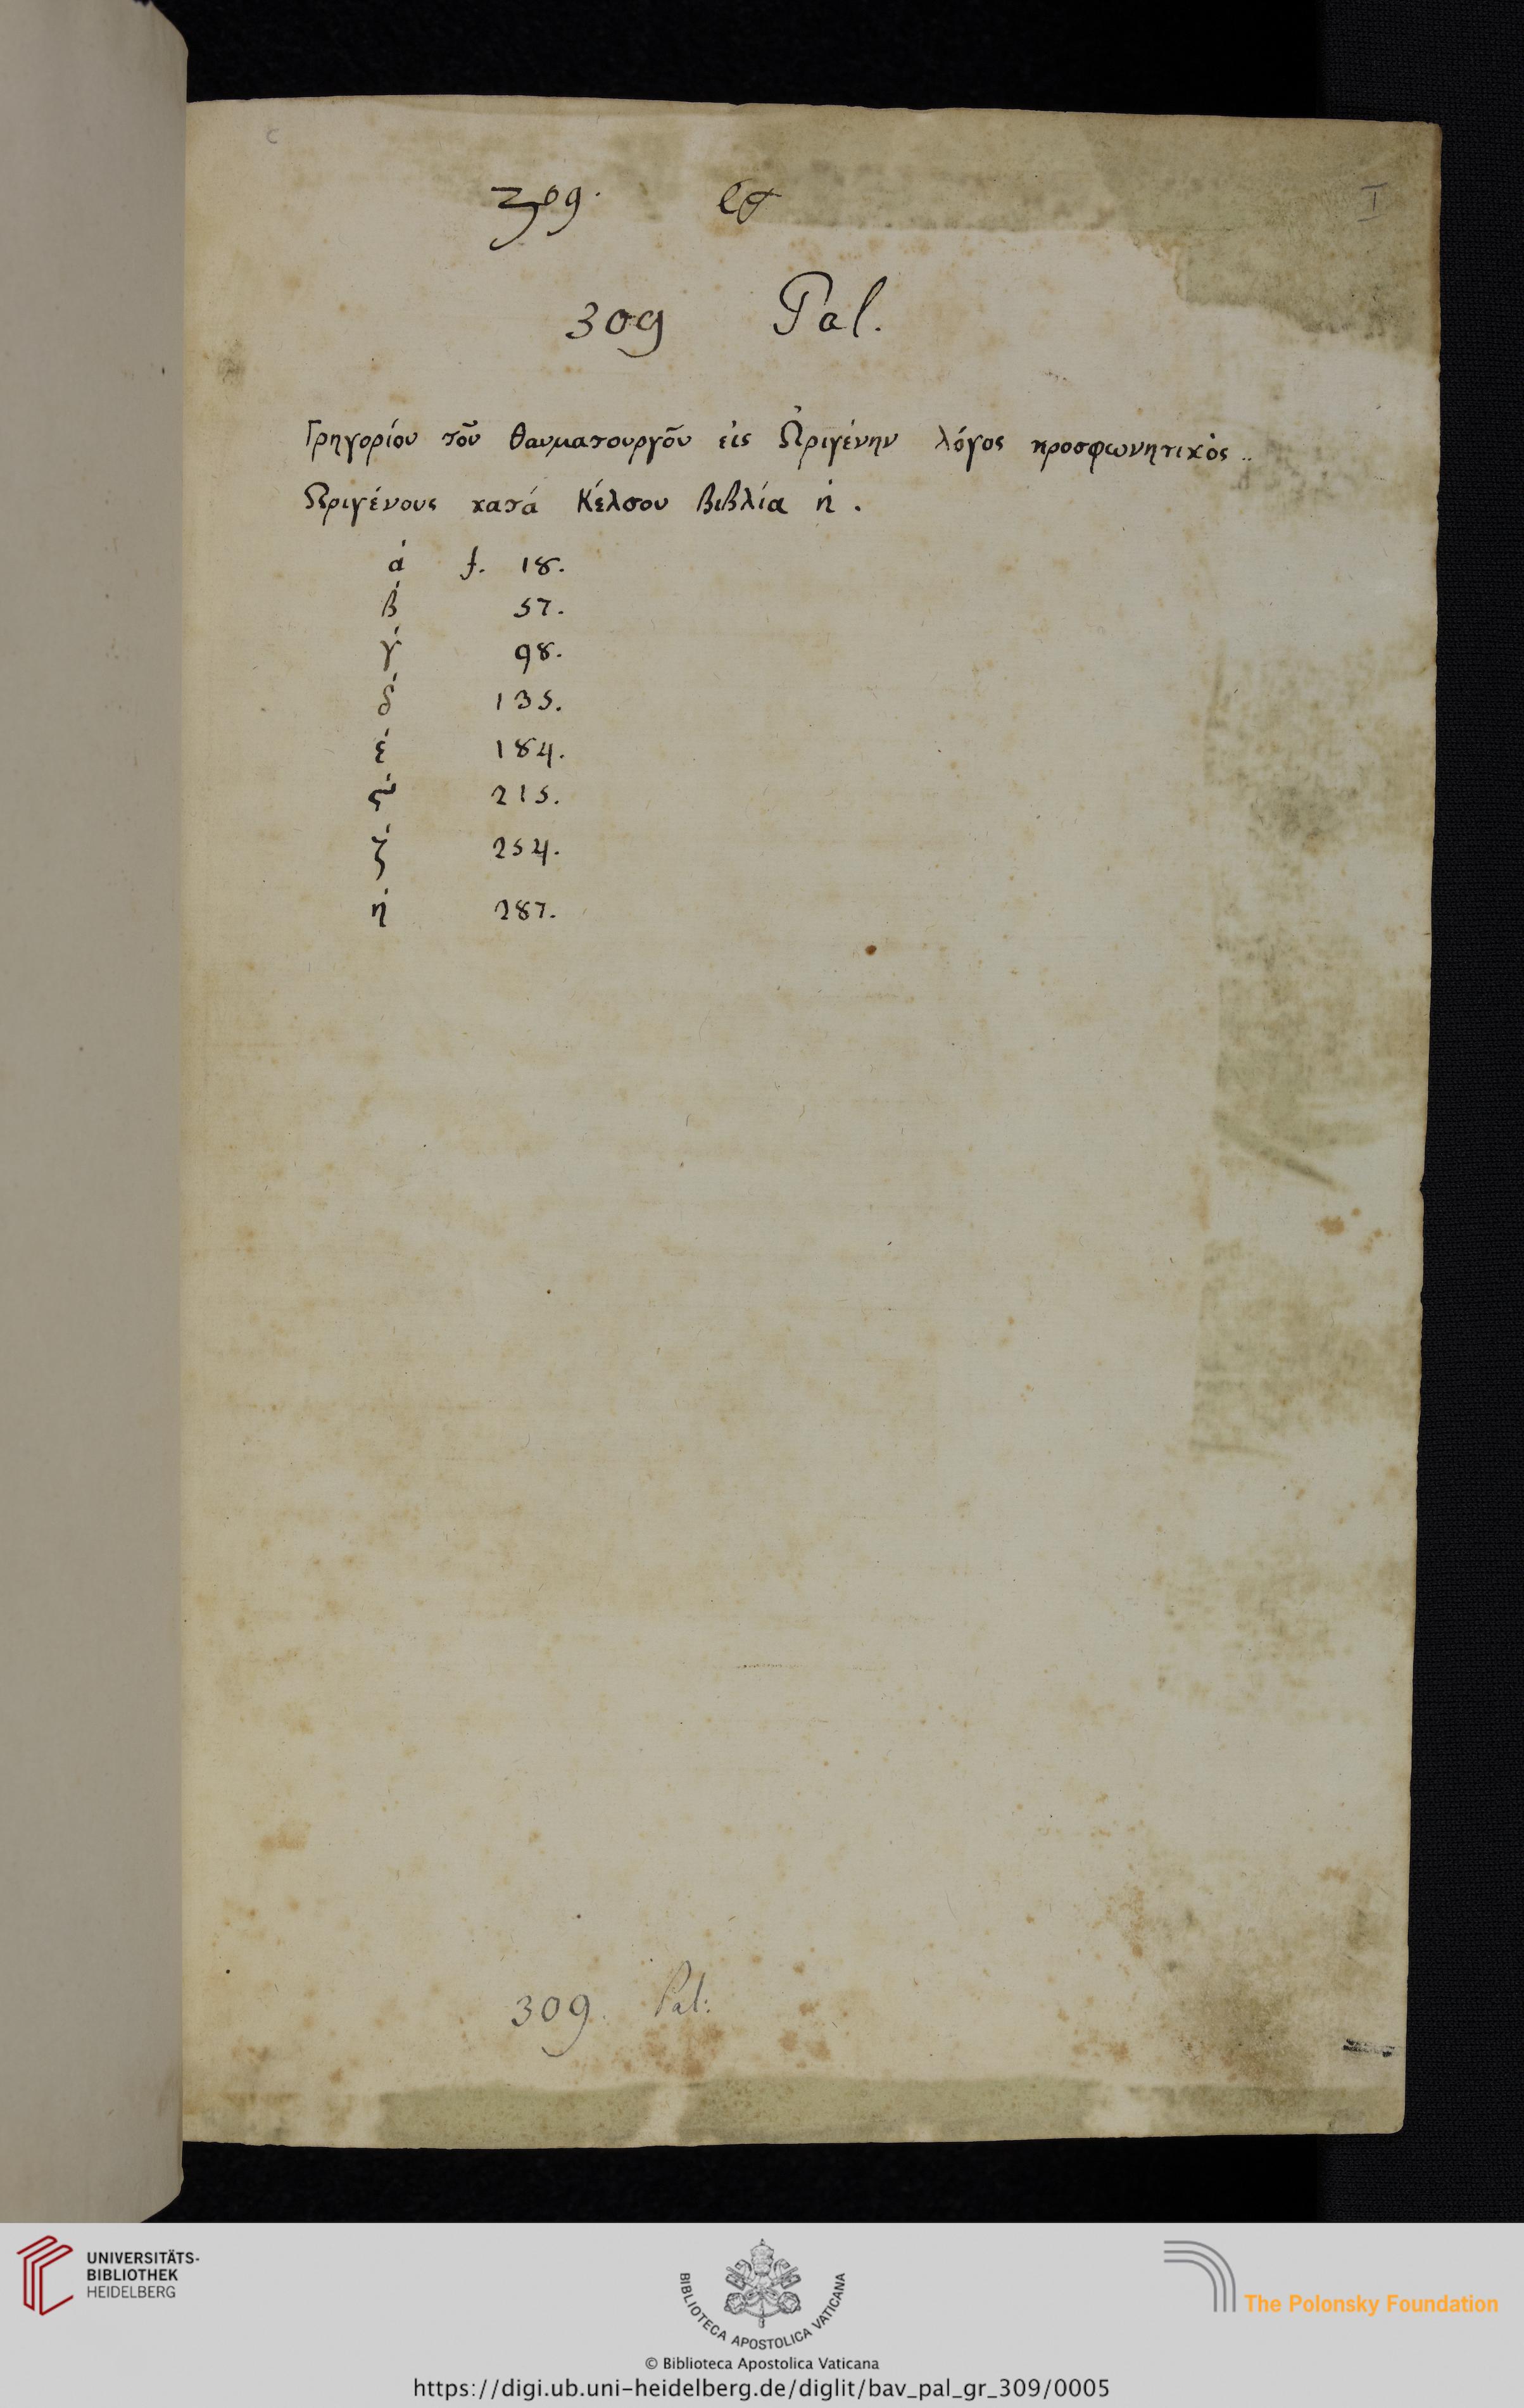 309.
I
309 Pal.
Γρηγορίου τοῦ θαυματουργοῦ εἰς Ὠριγένην λόγος προσφωνητικὸς..
Ωριγένους κατά Κέλσου βιβλία ή.
ά f. 18.
β́ 57.
γ́ 98.
δ́ 135.
έ 184.
ς́ 215.
ζ́ 254.
ή 287.
309. Pal:
UNIVERSITÄTS-
BIBLIOTHEK
HEIDELBERG
BIBLIOTECA APOSTOLICA VATICANA
The Polonsky Foundation
© Biblioteca Apostolica Vaticana
https://digi.ub.uni-heidelberg.de/diglit/bav_pal_gr_309/0005